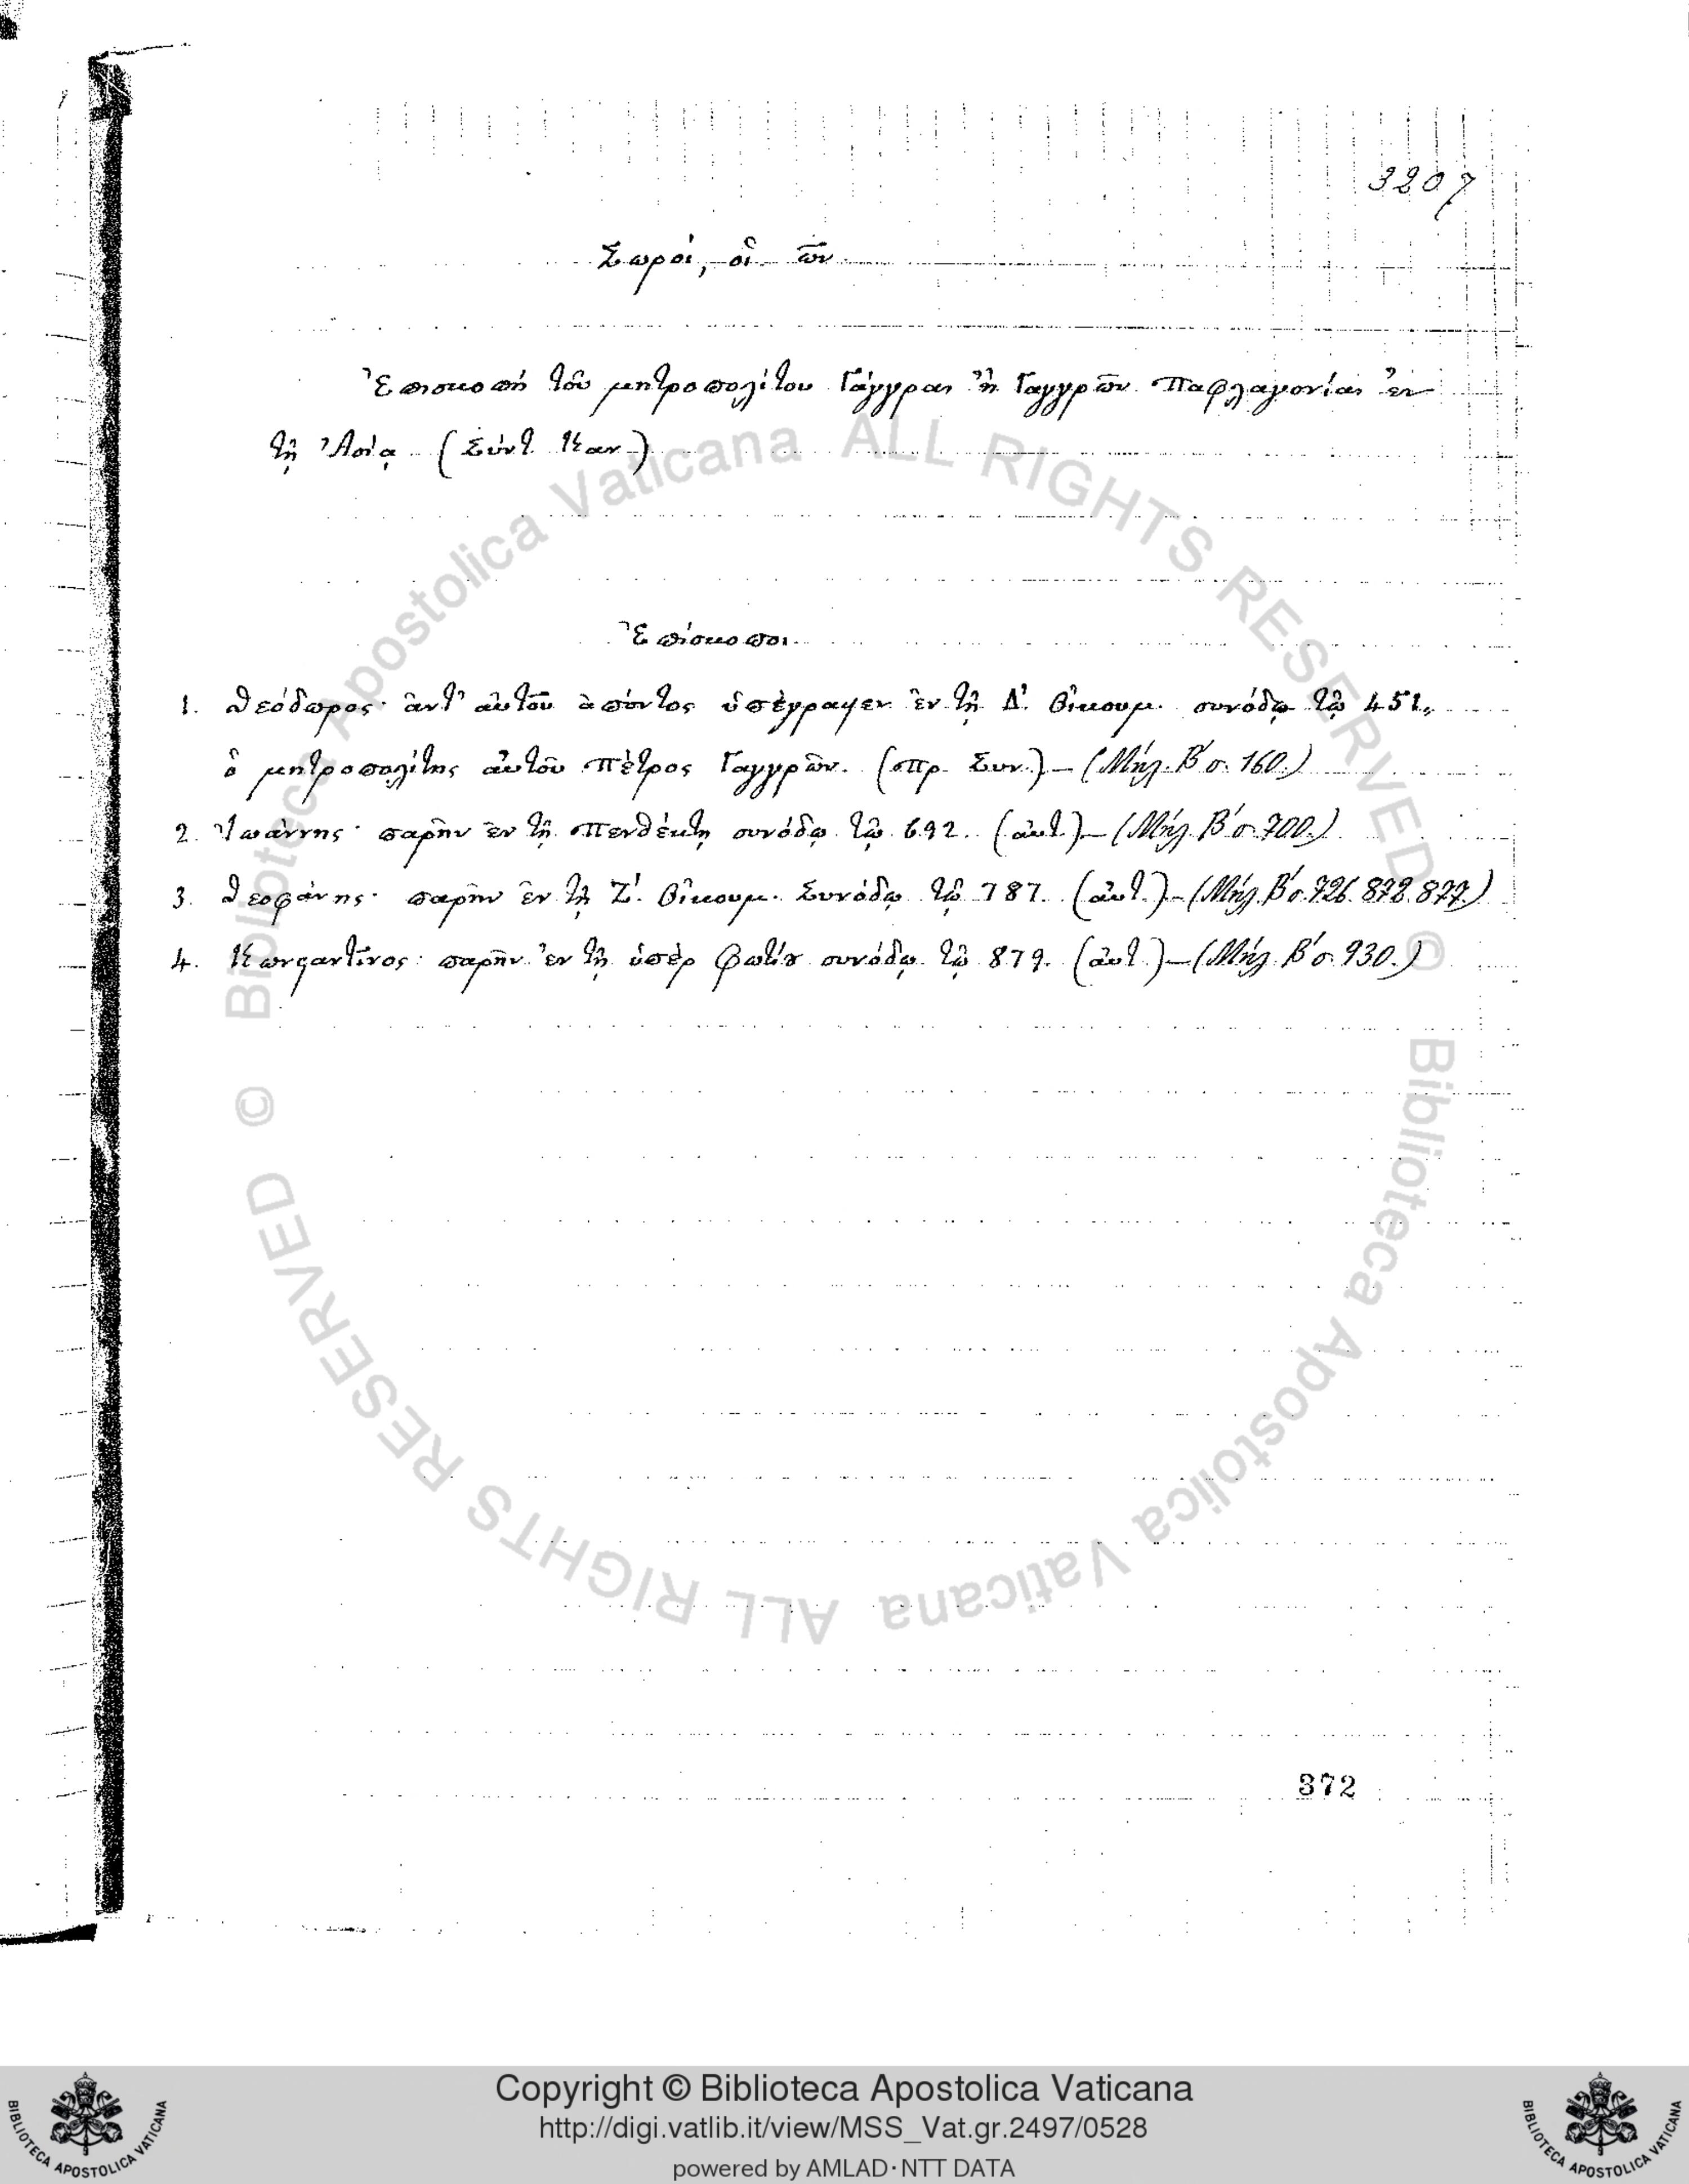 3207
Σωροί, οἱ ῶν
Ἐπισκοπὴ τοῦ μητροπολίτου Γάγγρας ἢ Γαγγρῶν Παφλαγονίας ἐν
τῇ Ἀσίᾳ (Σύντ. Καν.)
Ἐπίσκοποι
1. Θεόδωρος· ἀντ' αὐτοῦ ἀπόντος ὑπέγραψεν ἐν τῇ Δ'. Οἰκουμ. συνόδῳ τῷ 451,
ὁ μητροπολίτης αὐτοῦ Πέτρος Γαγγρῶν. (πρ. Συν.) – (Μήλ. Β' σ. 160.)
2. Ἰωάννης· παρῆν ἐν τῇ Πενθέκτῃ συνόδῳ τῷ 692. (αὐτ.) – (Μήλ. Β' σ. 700.)
3. Θεοφάνης· παρῆν ἐν τῇ Ζ'. Οἰκουμ. Συνόδῳ τῷ 787. (αὐτ.) – (Μήλ. Β' σ. 726. 872. 877.)
4. Κωνςαντῖνος· παρῆν ἐν τῇ ὑπὲρ Φωτίȣ συνόδῳ τῷ 879. (αὐτ.) – (Μήλ. Β' σ. 930.)
372
© Biblioteca Apostolica Vaticana ALL RIGHTS RESERVED
© Biblioteca Apostolica Vaticana ALL RIGHTS RESERVED
Copyright © Biblioteca Apostolica Vaticana
http://digi.vatlib.it/view/MSS_Vat.gr.2497/0528
powered by AMLAD·NTT DATA
BIBLIOTECA APOSTOLICA VATICANA
BIBLIOTECA APOSTOLICA VATICANA